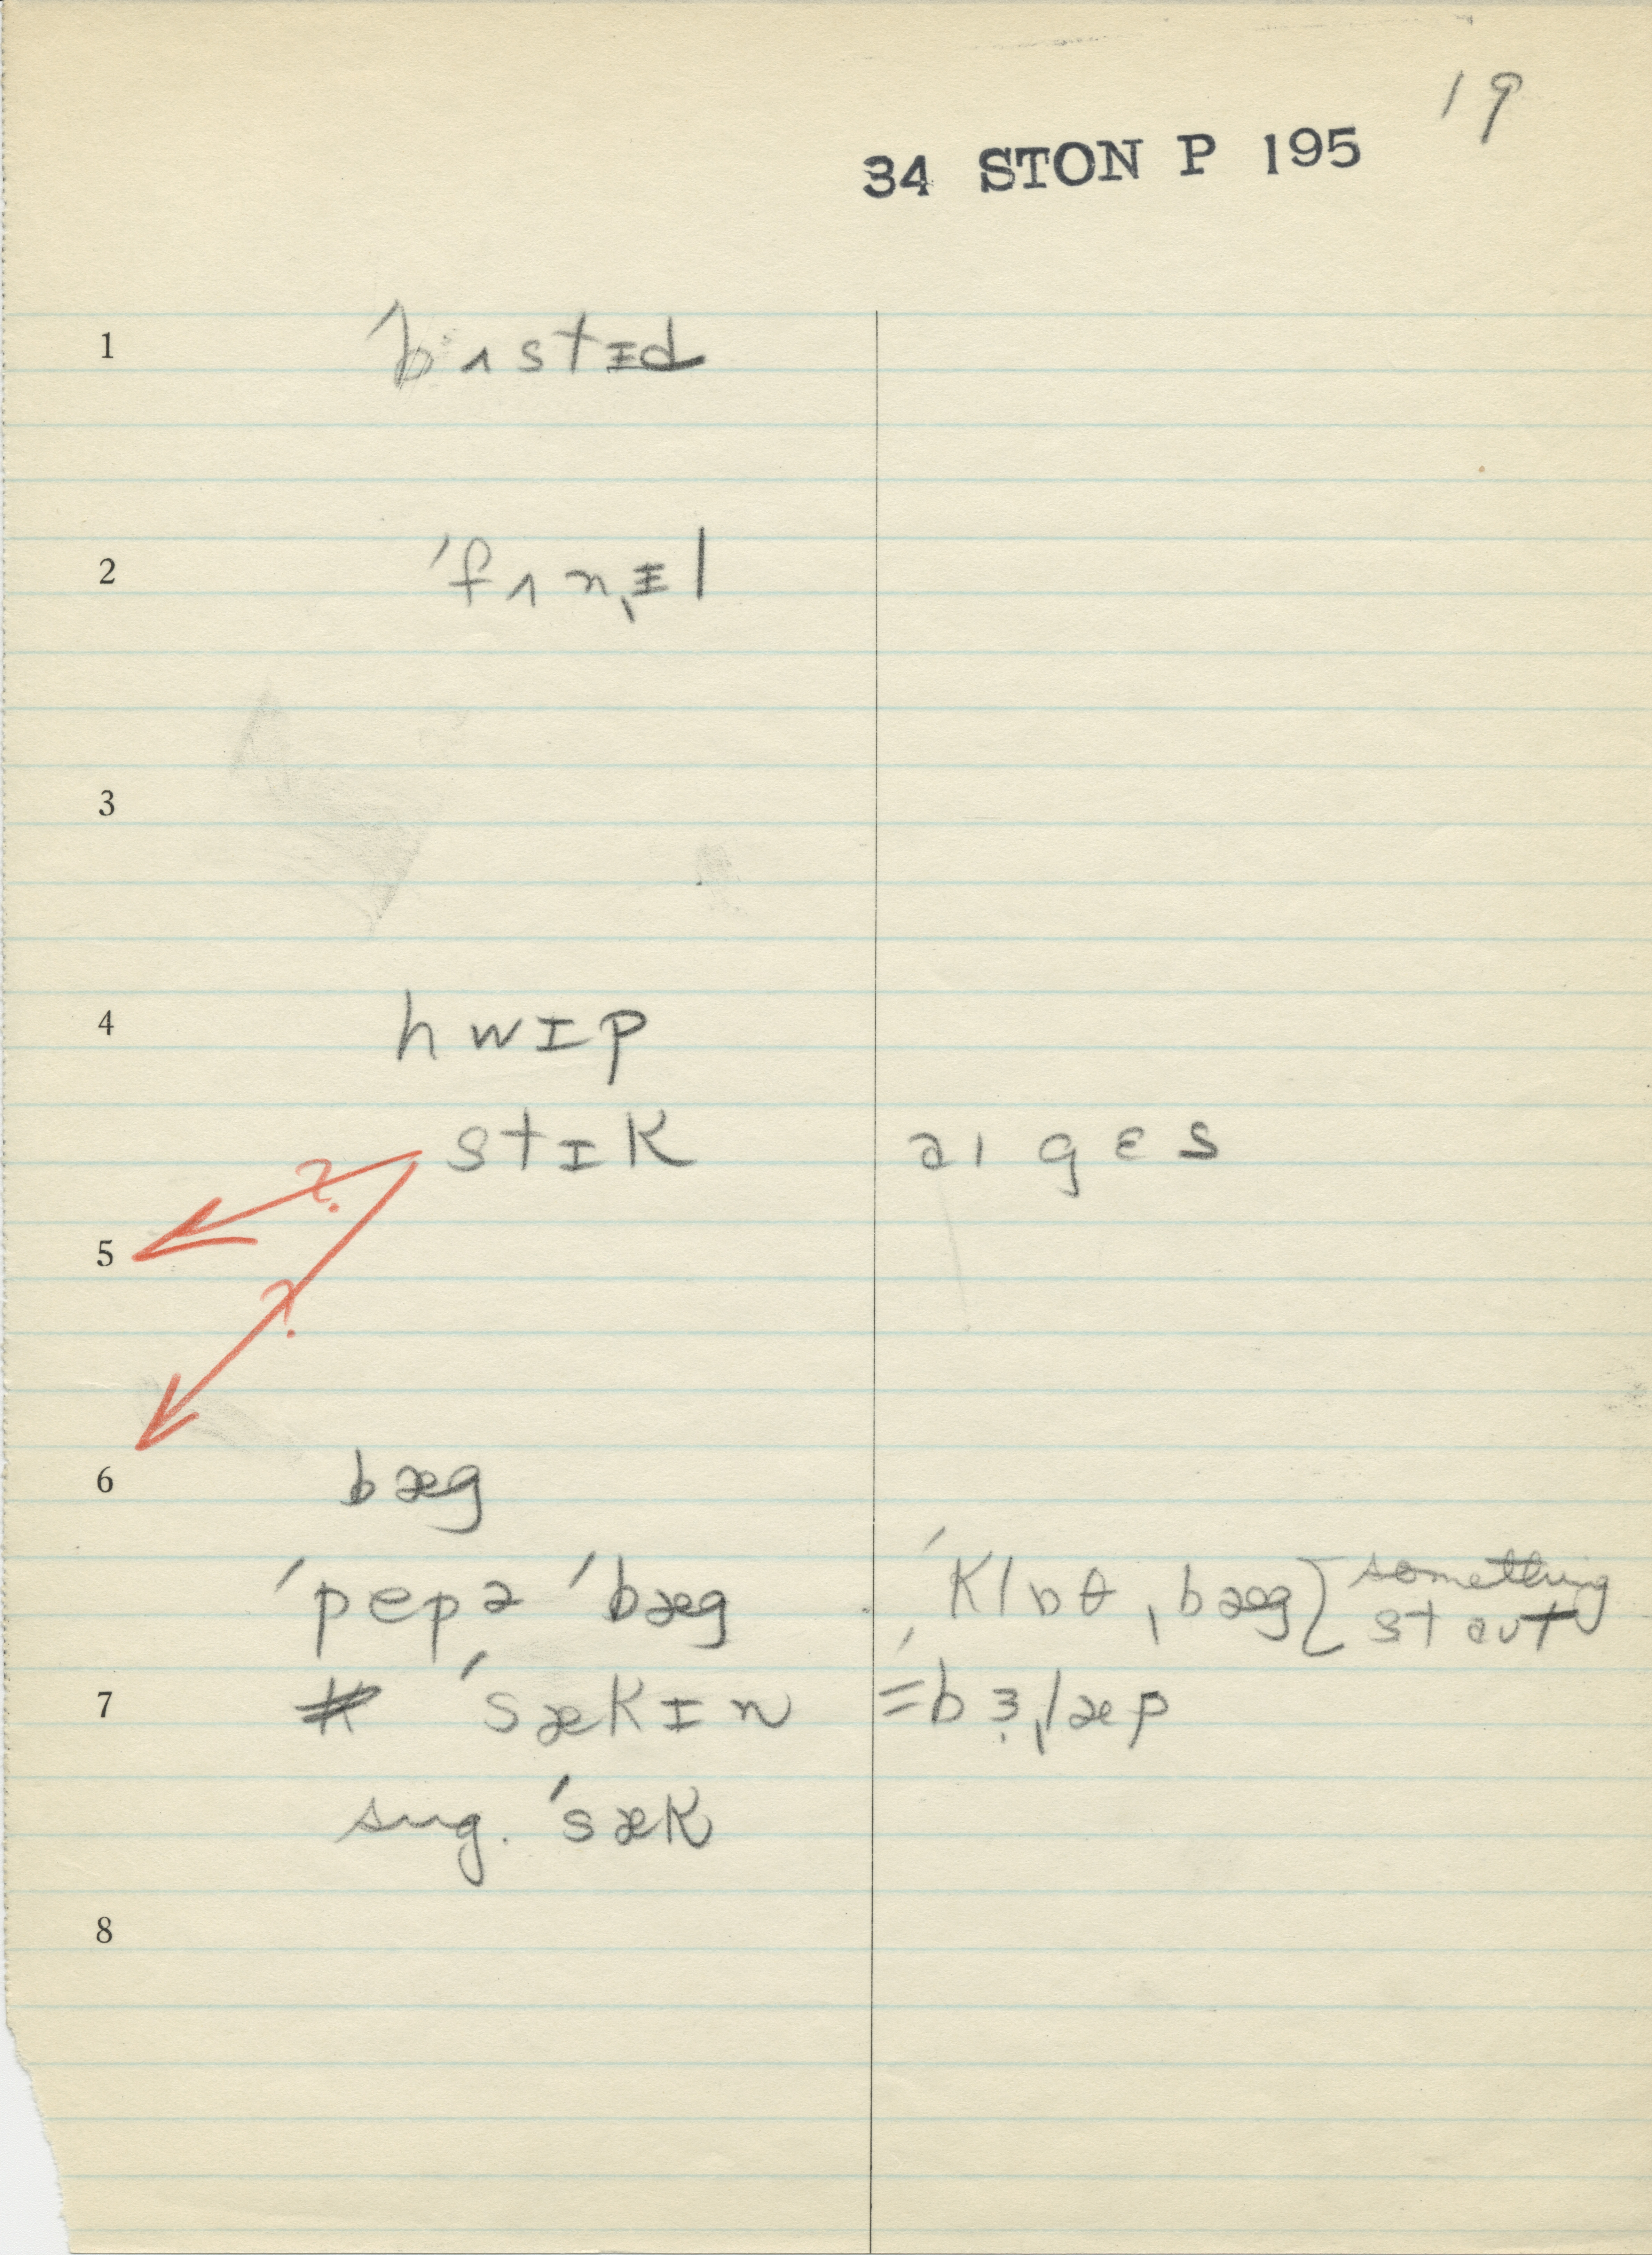 19
34 STON P 195
1 ˈbʌstɪd
2 ˈfʌnˌɪl
3
4 hwɪp
stɪk aɪ gɛs
?
5
?
6 bæg
ˈpepə ˈbæg ˈklɒθˌbæg} something
staut
7 ˈsækɪn = ˈbɜˌlæp
sug. ˈsæk
8